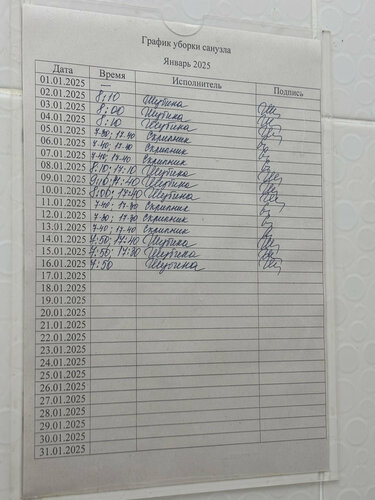 График уборки санузла
Январь 2025
Дата Время Исполнитель Подпись
01.01.2025 —
02.01.2025 8:10 Шубина
03.01.2025 8:00 Шубина
04.01.2025 8:10 Шубина
05.01.2025 7.40; 17.40 Скрипник
06.01.2025 7.40; 17.40 Скрипник
07.01.2025 7.40; 17.40 Скрипник
08.01.2025 8:10; 17:10 Шубина
09.01.2025 8:10; 17:40 Шубина
10.01.2025 8:00; 17:40 Шубина
11.01.2025 7.40; 17.30 Скрипник
12.01.2025 7.30; 17.30 Скрипник
13.01.2025 7.40; 17.40 Скрипник
14.01.2025 7:50; 17:40 Шубина
15.01.2025 7:50; 17:30 Шубина
16.01.2025 7:50 Шубина
17.01.2025
18.01.2025
19.01.2025
20.01.2025
21.01.2025
22.01.2025
23.01.2025
24.01.2025
25.01.2025
26.01.2025
27.01.2025
28.01.2025
29.01.2025
30.01.2025
31.01.2025